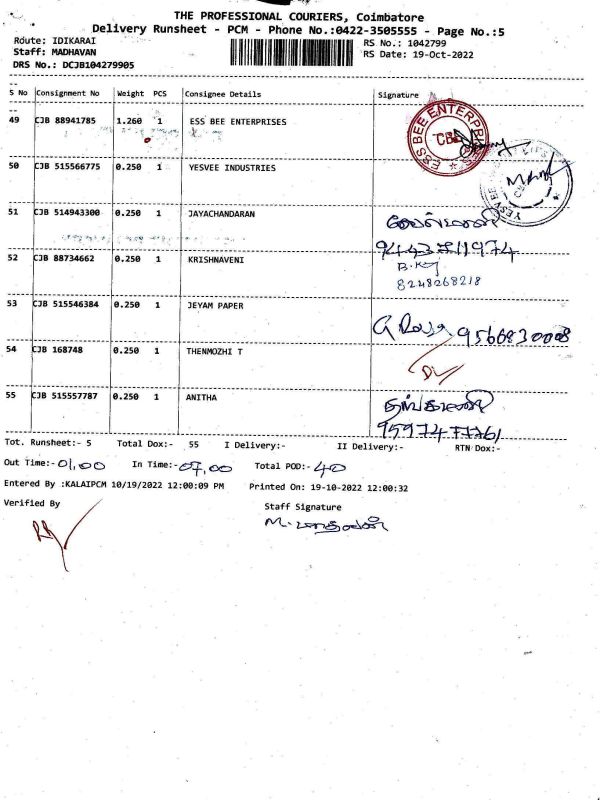 THE PROFESSIONAL COURIERS, Coimbatore
Delivery Runsheet - PCM - Phone No.:0422-3505555 - Page No.:5
Route: IDIKARAI
RS No.: 1042799
Staff: MADHAVAN
RS Date: 19-Oct-2022
DRS No.: DCJB104279905
S No Consignment No Weight PCS Consignee Details Signature
49 CJB 88941785 1.260 1 ESS BEE ENTERPRISES
ESS BEE ENTERPRISES CBE
50 CJB 515566775 0.250 1 YESVEE INDUSTRIES
51 CJB 514943300 0.250 1 JAYACHANDARAN
52 CJB 88734662 0.250 1 KRISHNAVENI
8248268218
53 CJB 515546384 0.250 1 JEYAM PAPER
9566830008
54 CJB 168748 0.250 1 THENMOZHI T
55 CJB 515557787 0.250 1 ANITHA
தங்கமணி
Tot. Runsheet:- 5 Total Dox:- 55 I Delivery:- II Delivery:- RTN Dox:-
Out Time:- 01.00 In Time:- 07.00 Total POD:- 40
Entered By :KALAIPCM 10/19/2022 12:00:09 PM Printed On: 19-10-2022 12:00:32
Verified By
Staff Signature
M. மாதவன்